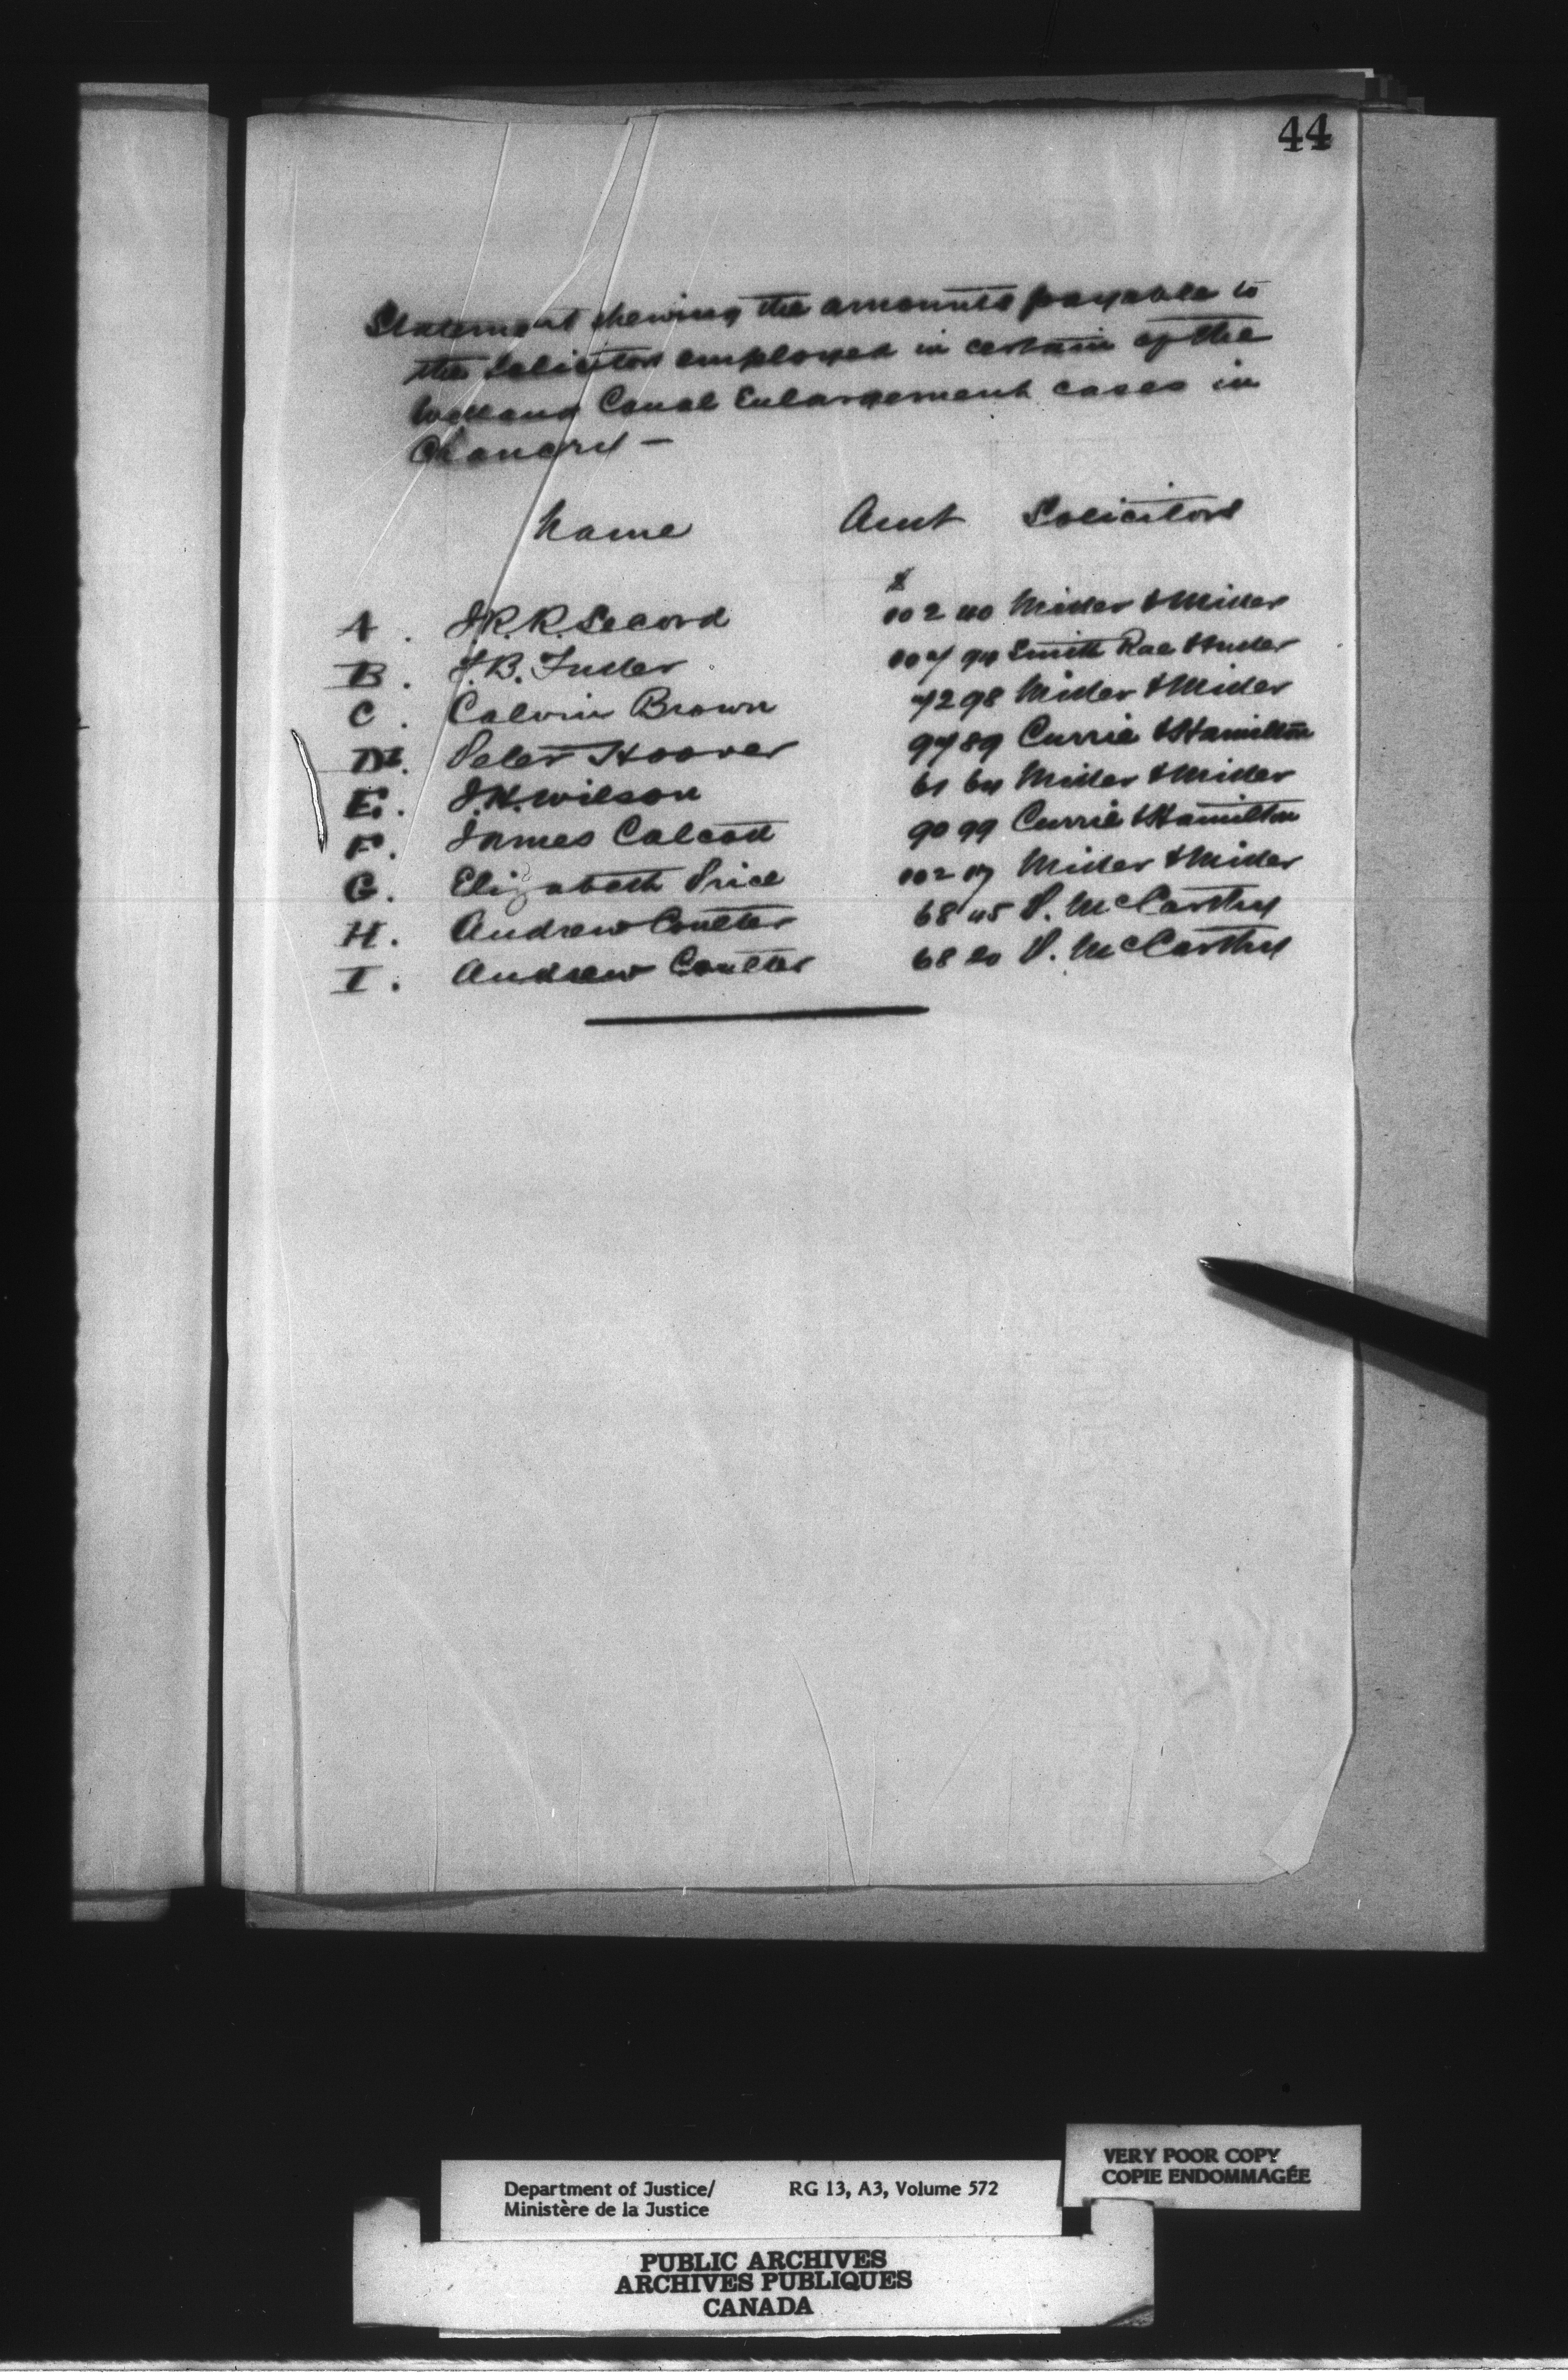 44
Statement shewing the amounts payable to
the Solicitors employed in certain of the
Welland Canal Enlargement cases in
Chancery —
Name Amt Solicitors
$
A. J.R.R. Secord 102 40 Miller & Miller
B. F.B. Fuller 94 Smith Rae &
C. Calvin Brown 72 98 Miller & Miller
D. Peter Hoover 97 89 Currie & Hamilton
E. J.H. Wilson 61 64 Miller & Miller
F. James Calcott 90 99 Currie & Hamilton
G. Elizabeth Price 102 Miller & Miller
H. Andrew Coulter 68 45 P. McCarthy
I. Andrew Coulter 68 20 P. McCarthy
VERY POOR COPY
COPIE ENDOMMAGÉE
Department of Justice/ RG 13, A3, Volume 572
Ministère de la Justice
PUBLIC ARCHIVES
ARCHIVES PUBLIQUES
CANADA